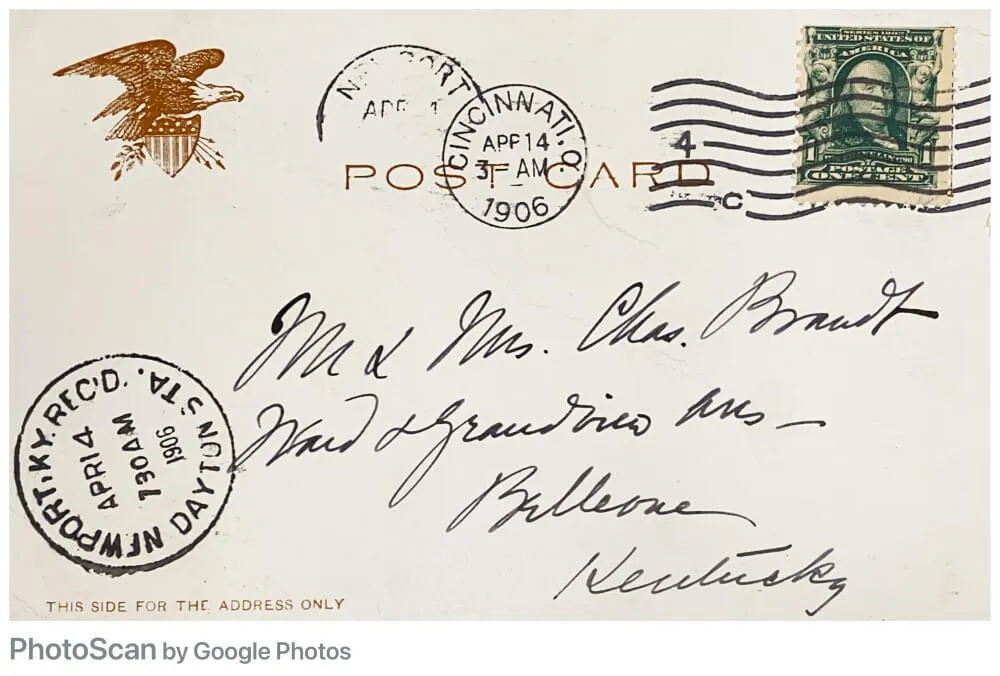 SERIES 1902
UNITED STATES OF
AMERICA
1 1
POSTAGE
ONE CENT
APR 1
CINCINNATI, O.
APR 14
3 - AM
1906
4
C
POST CARD
Mr & Mrs. Chas. Brandt
Ward & Grandview Aves
Bellevue
Kentucky
NEWPORT, KY. REC'D.
APR 14
730 AM
1906
DAYTON STA.
THIS SIDE FOR THE ADDRESS ONLY
PhotoScan by Google Photos